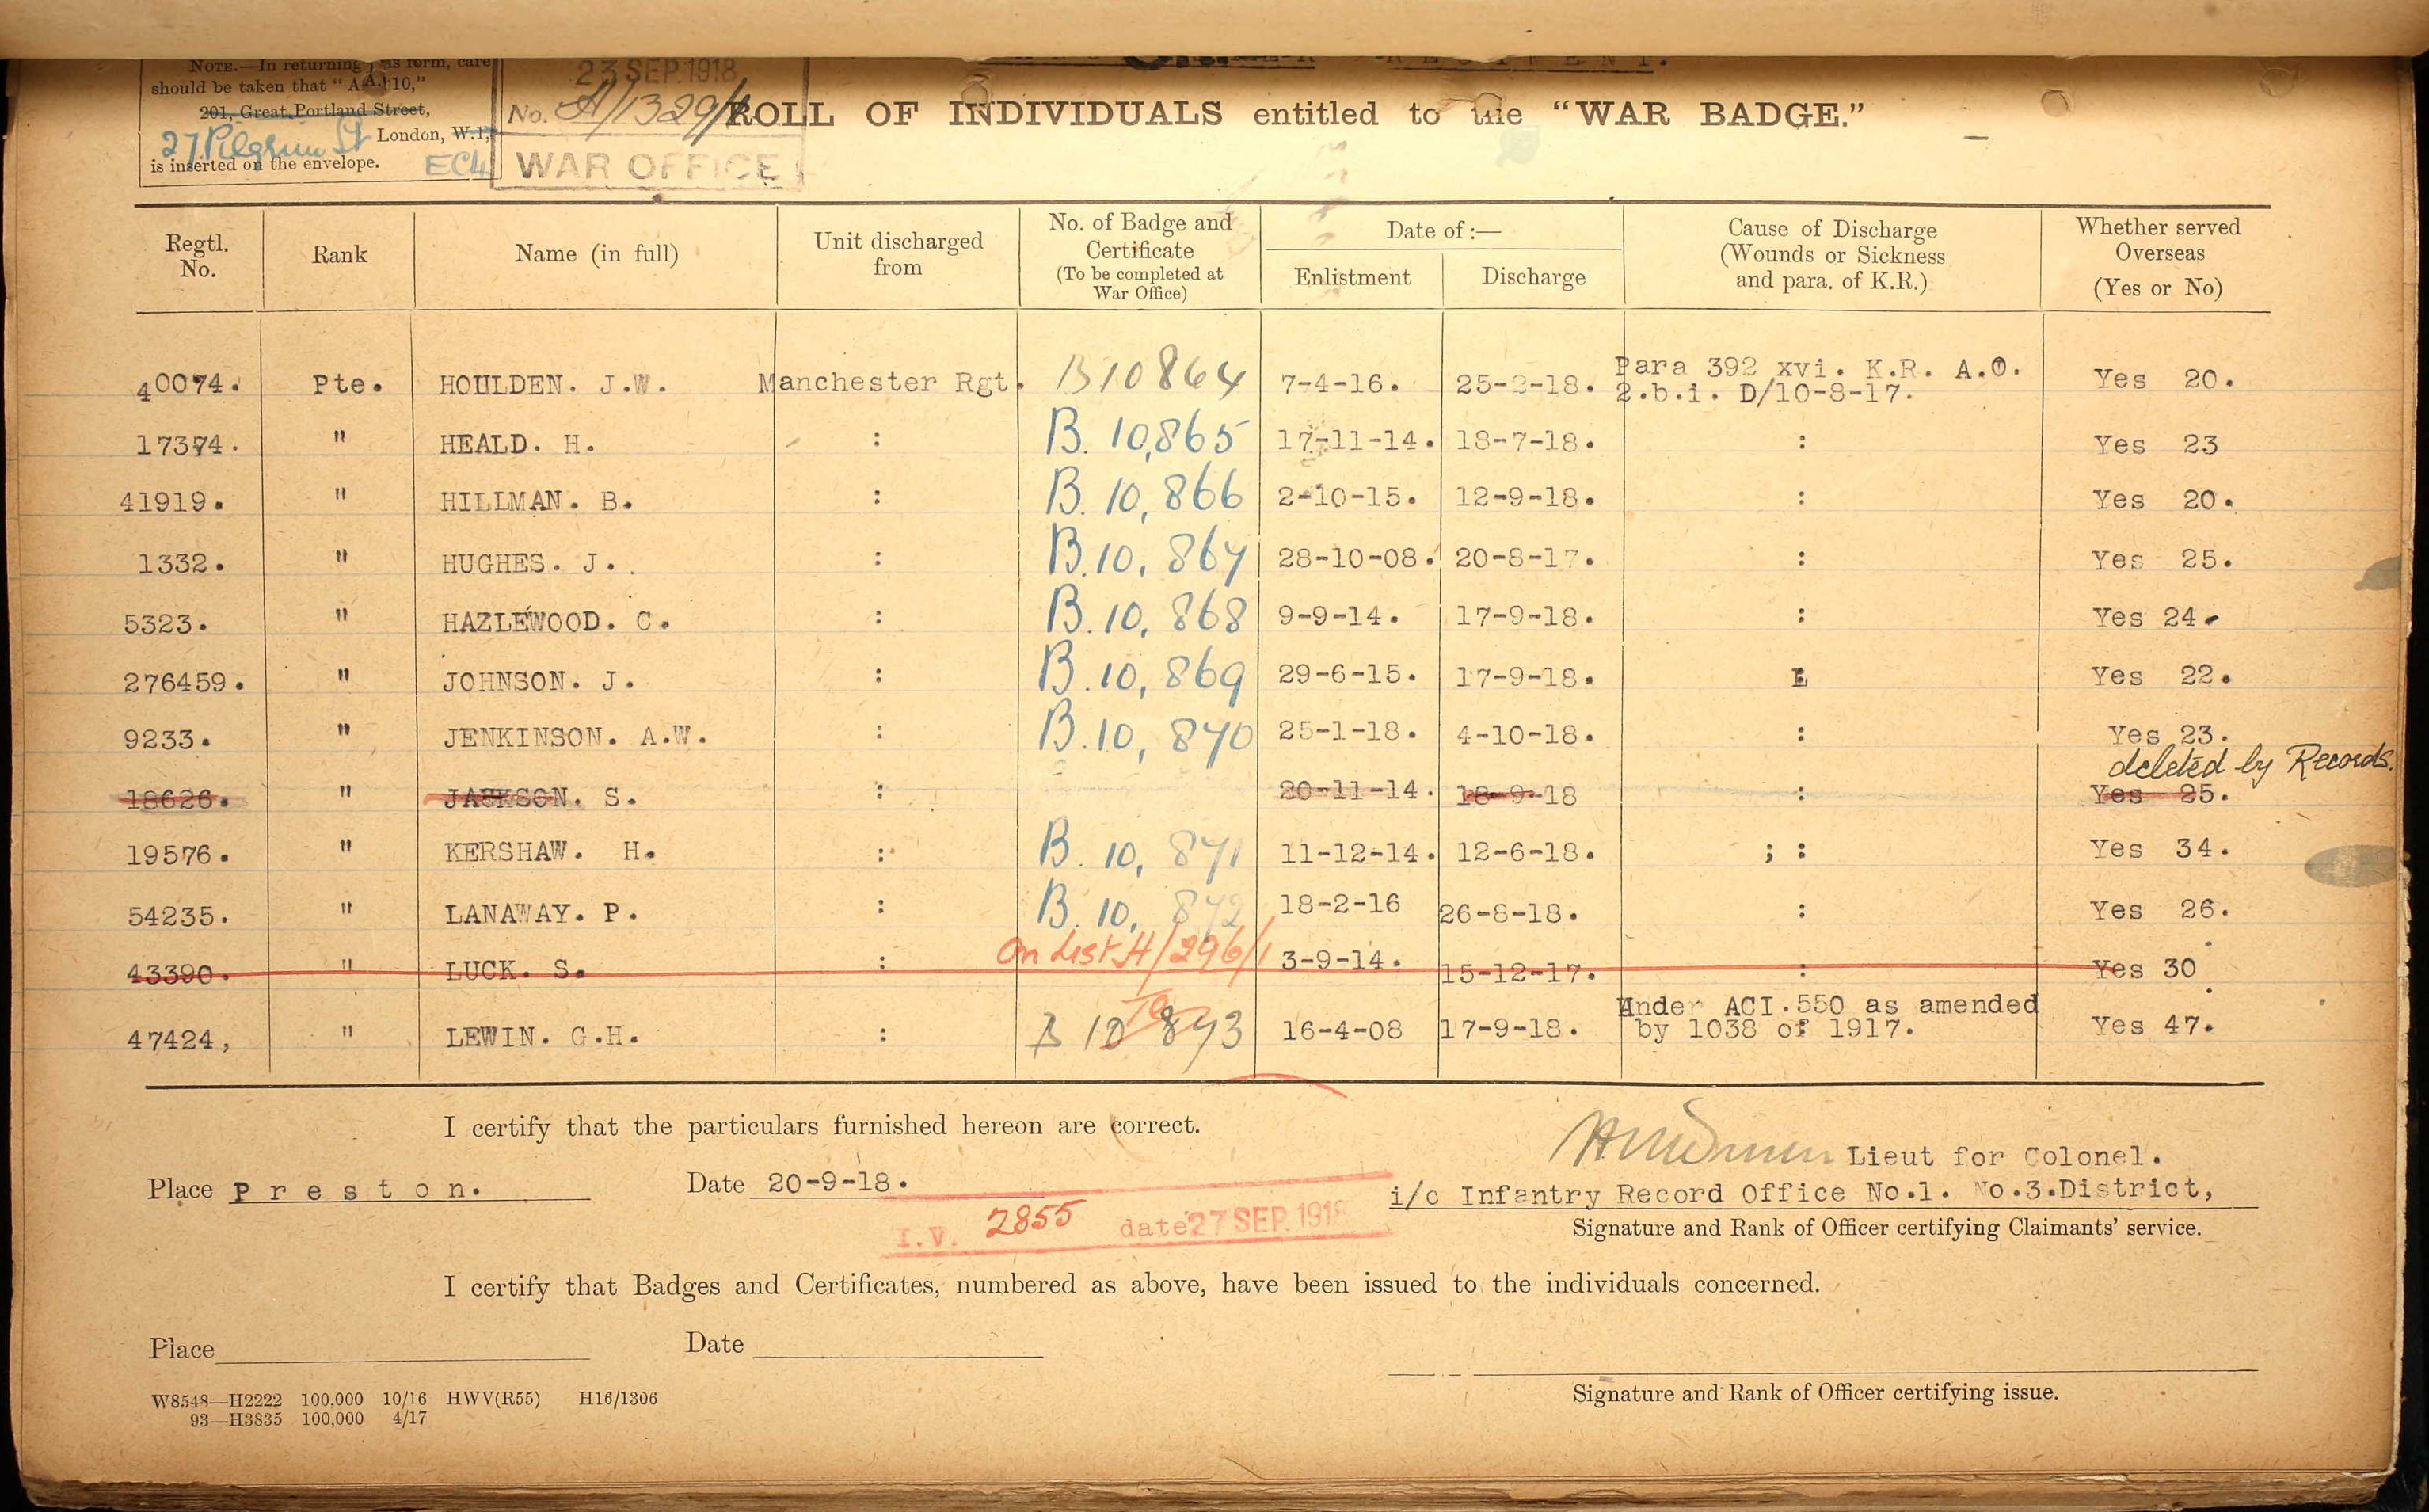 NOTE.—In returning this form, care
should be taken that "A.A.10,"
201, Great Portland Street,
27 Pilgrim St London, W.1, EC4
is inserted on the envelope.
23 SEP. 1918
No. A/1329/1
WAR OFFICE
ROLL OF INDIVIDUALS entitled to the "WAR BADGE."
Regtl. No. Rank Name (in full) Unit discharged from No. of Badge and Certificate (To be completed at War Office) Date of:— Enlistment Discharge Cause of Discharge (Wounds or Sickness and para. of K.R.) Whether served Overseas (Yes or No)
40074. Pte. HOULDEN. J.W. Manchester Rgt. B10864 7-4-16. 25-2-18. Para 392 xvi. K.R. A.O. 2.b.i. D/10-8-17. Yes 20.
17374. " HEALD. H. : B. 10,865 17-11-14. 18-7-18. : Yes 23
41919. " HILLMAN. B. : B. 10,866 2-10-15. 12-9-18. : Yes 20.
1332. " HUGHES. J. : B.10,867 28-10-08. 20-8-17. : Yes 25.
5323. " HAZLEWOOD. C. : B.10,868 9-9-14. 17-9-18. : Yes 24.
276459. " JOHNSON. J. : B.10,869 29-6-15. 17-9-18. : Yes 22.
9233. " JENKINSON. A.W. : B.10,870 25-1-18. 4-10-18. : Yes 23.
deleted by Records.
18626. " JACKSON. S. : 20-11-14. 18-9-18 : Yes 25.
19576. " KERSHAW. H. : B. 10,871 11-12-14. 12-6-18. ; : Yes 34.
54235. " LANAWAY. P. : B. 10,872 18-2-16 26-8-18. : Yes 26.
43390. " LUCK. S. : On List H/296/1 3-9-14. 15-12-17. : Yes 30
47424, " LEWIN. G.H. : B 10 873 16-4-08 17-9-18. Under ACI.550 as amended by 1038 of 1917. Yes 47.
I certify that the particulars furnished hereon are correct.
Lieut for Colonel.
Place Preston. Date 20-9-18. i/c Infantry Record Office No.1. No.3.District,
I.V. 2855 date 27 SEP. 1918
Signature and Rank of Officer certifying Claimants' service.
I certify that Badges and Certificates, numbered as above, have been issued to the individuals concerned.
Place Date
Signature and Rank of Officer certifying issue.
W8548—H2222 100,000 10/16 HWV(R55) H16/1306
93—H3835 100,000 4/17